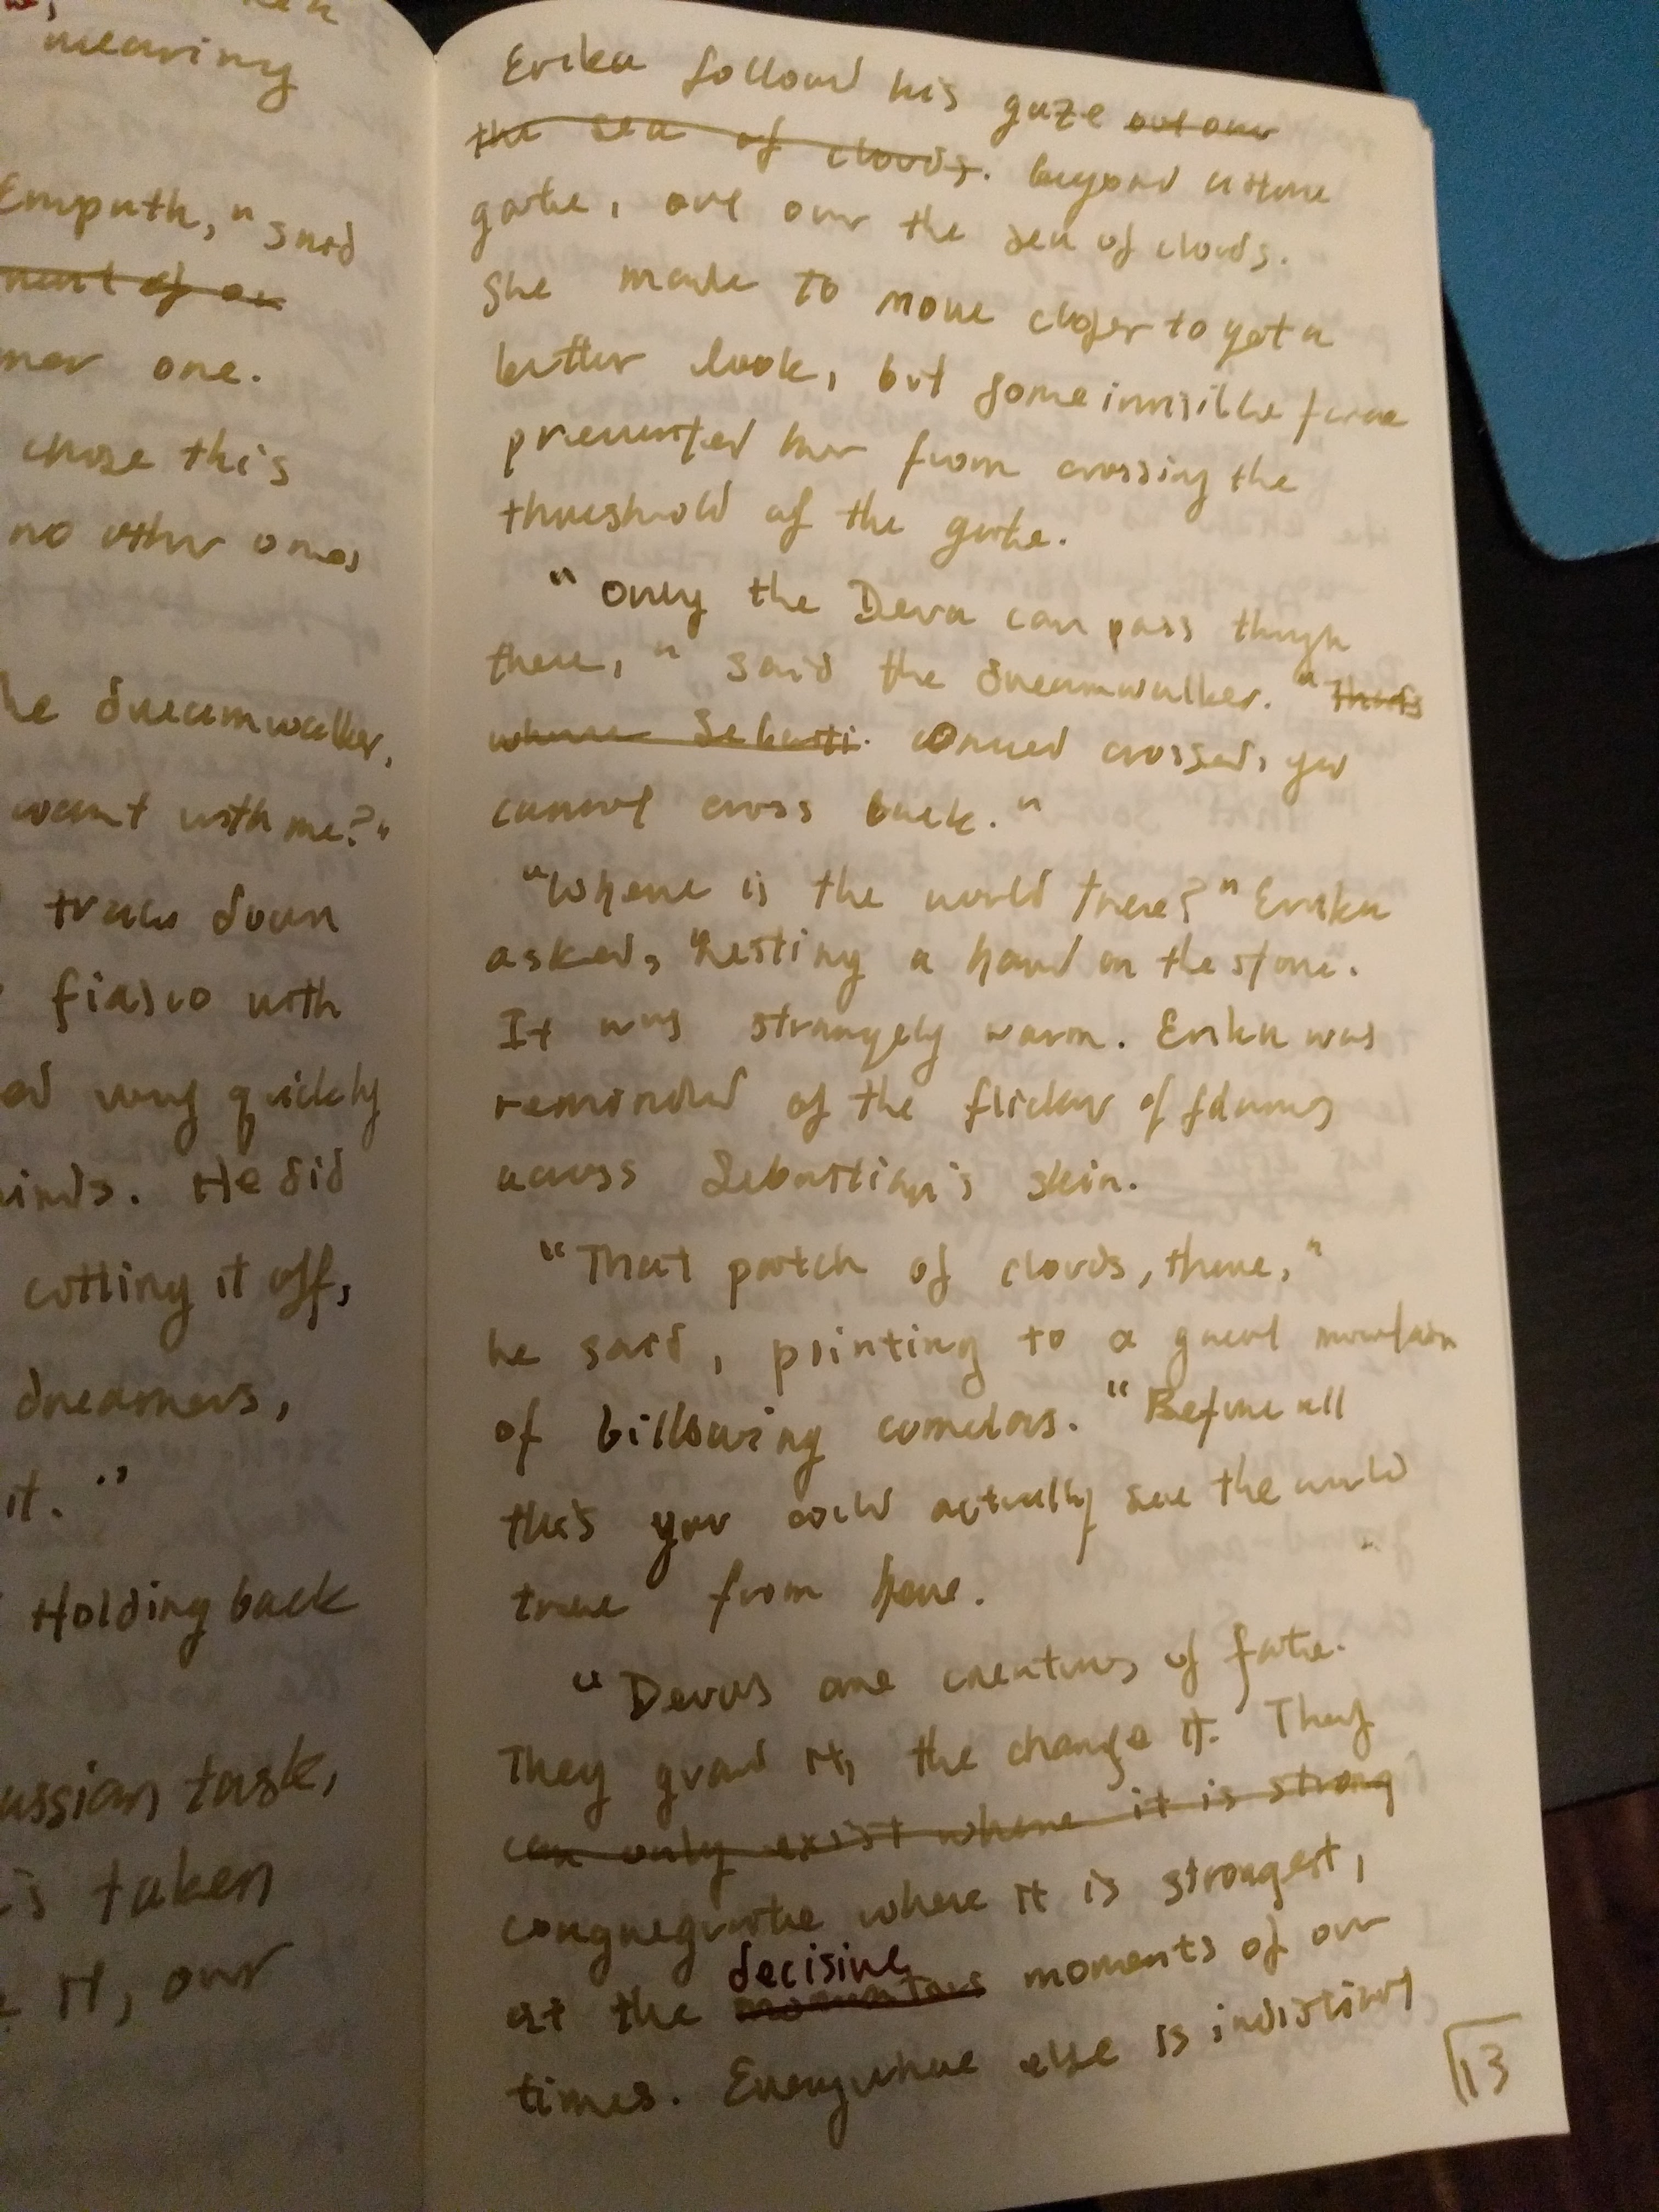 meaning
Empath," said
ment of an
mer one.
chose this
no other ones
he dreamwalker,
want with me?"
track down
fiasco with
ed very quickly
minds. He did
cutting it off,
dreamers,
it."
Holding back
ussian task,
is taken
it, our
Erika followed his gaze out over
the sea of clouds. beyond a stone
gate, out over the sea of clouds.
She made to move closer to get a
better look, but some invisible force
prevented her from crossing the
threshold of the gate.
"Only the Deva can pass through
there," said the dreamwalker. "That's
where Sebasti. Onced crossed, you
cannot cross back."
"Where is the world tree?" Erika
asked, resting a hand on the stone.
It was strangely warm. Erika was
reminded of the flicker of flames
across Sebastian's skin.
"That patch of clouds, there,"
he said, pointing to a great mountain
of billowing
"Before all
this you could actually see the world
tree from here.
"Devas are creatures of fate.
They guard it, the change it. They
can only exist where it is strong
congregate where it is strongest,
decisive
at the momentous moments of our
times. Everywhere else is indistinct
13